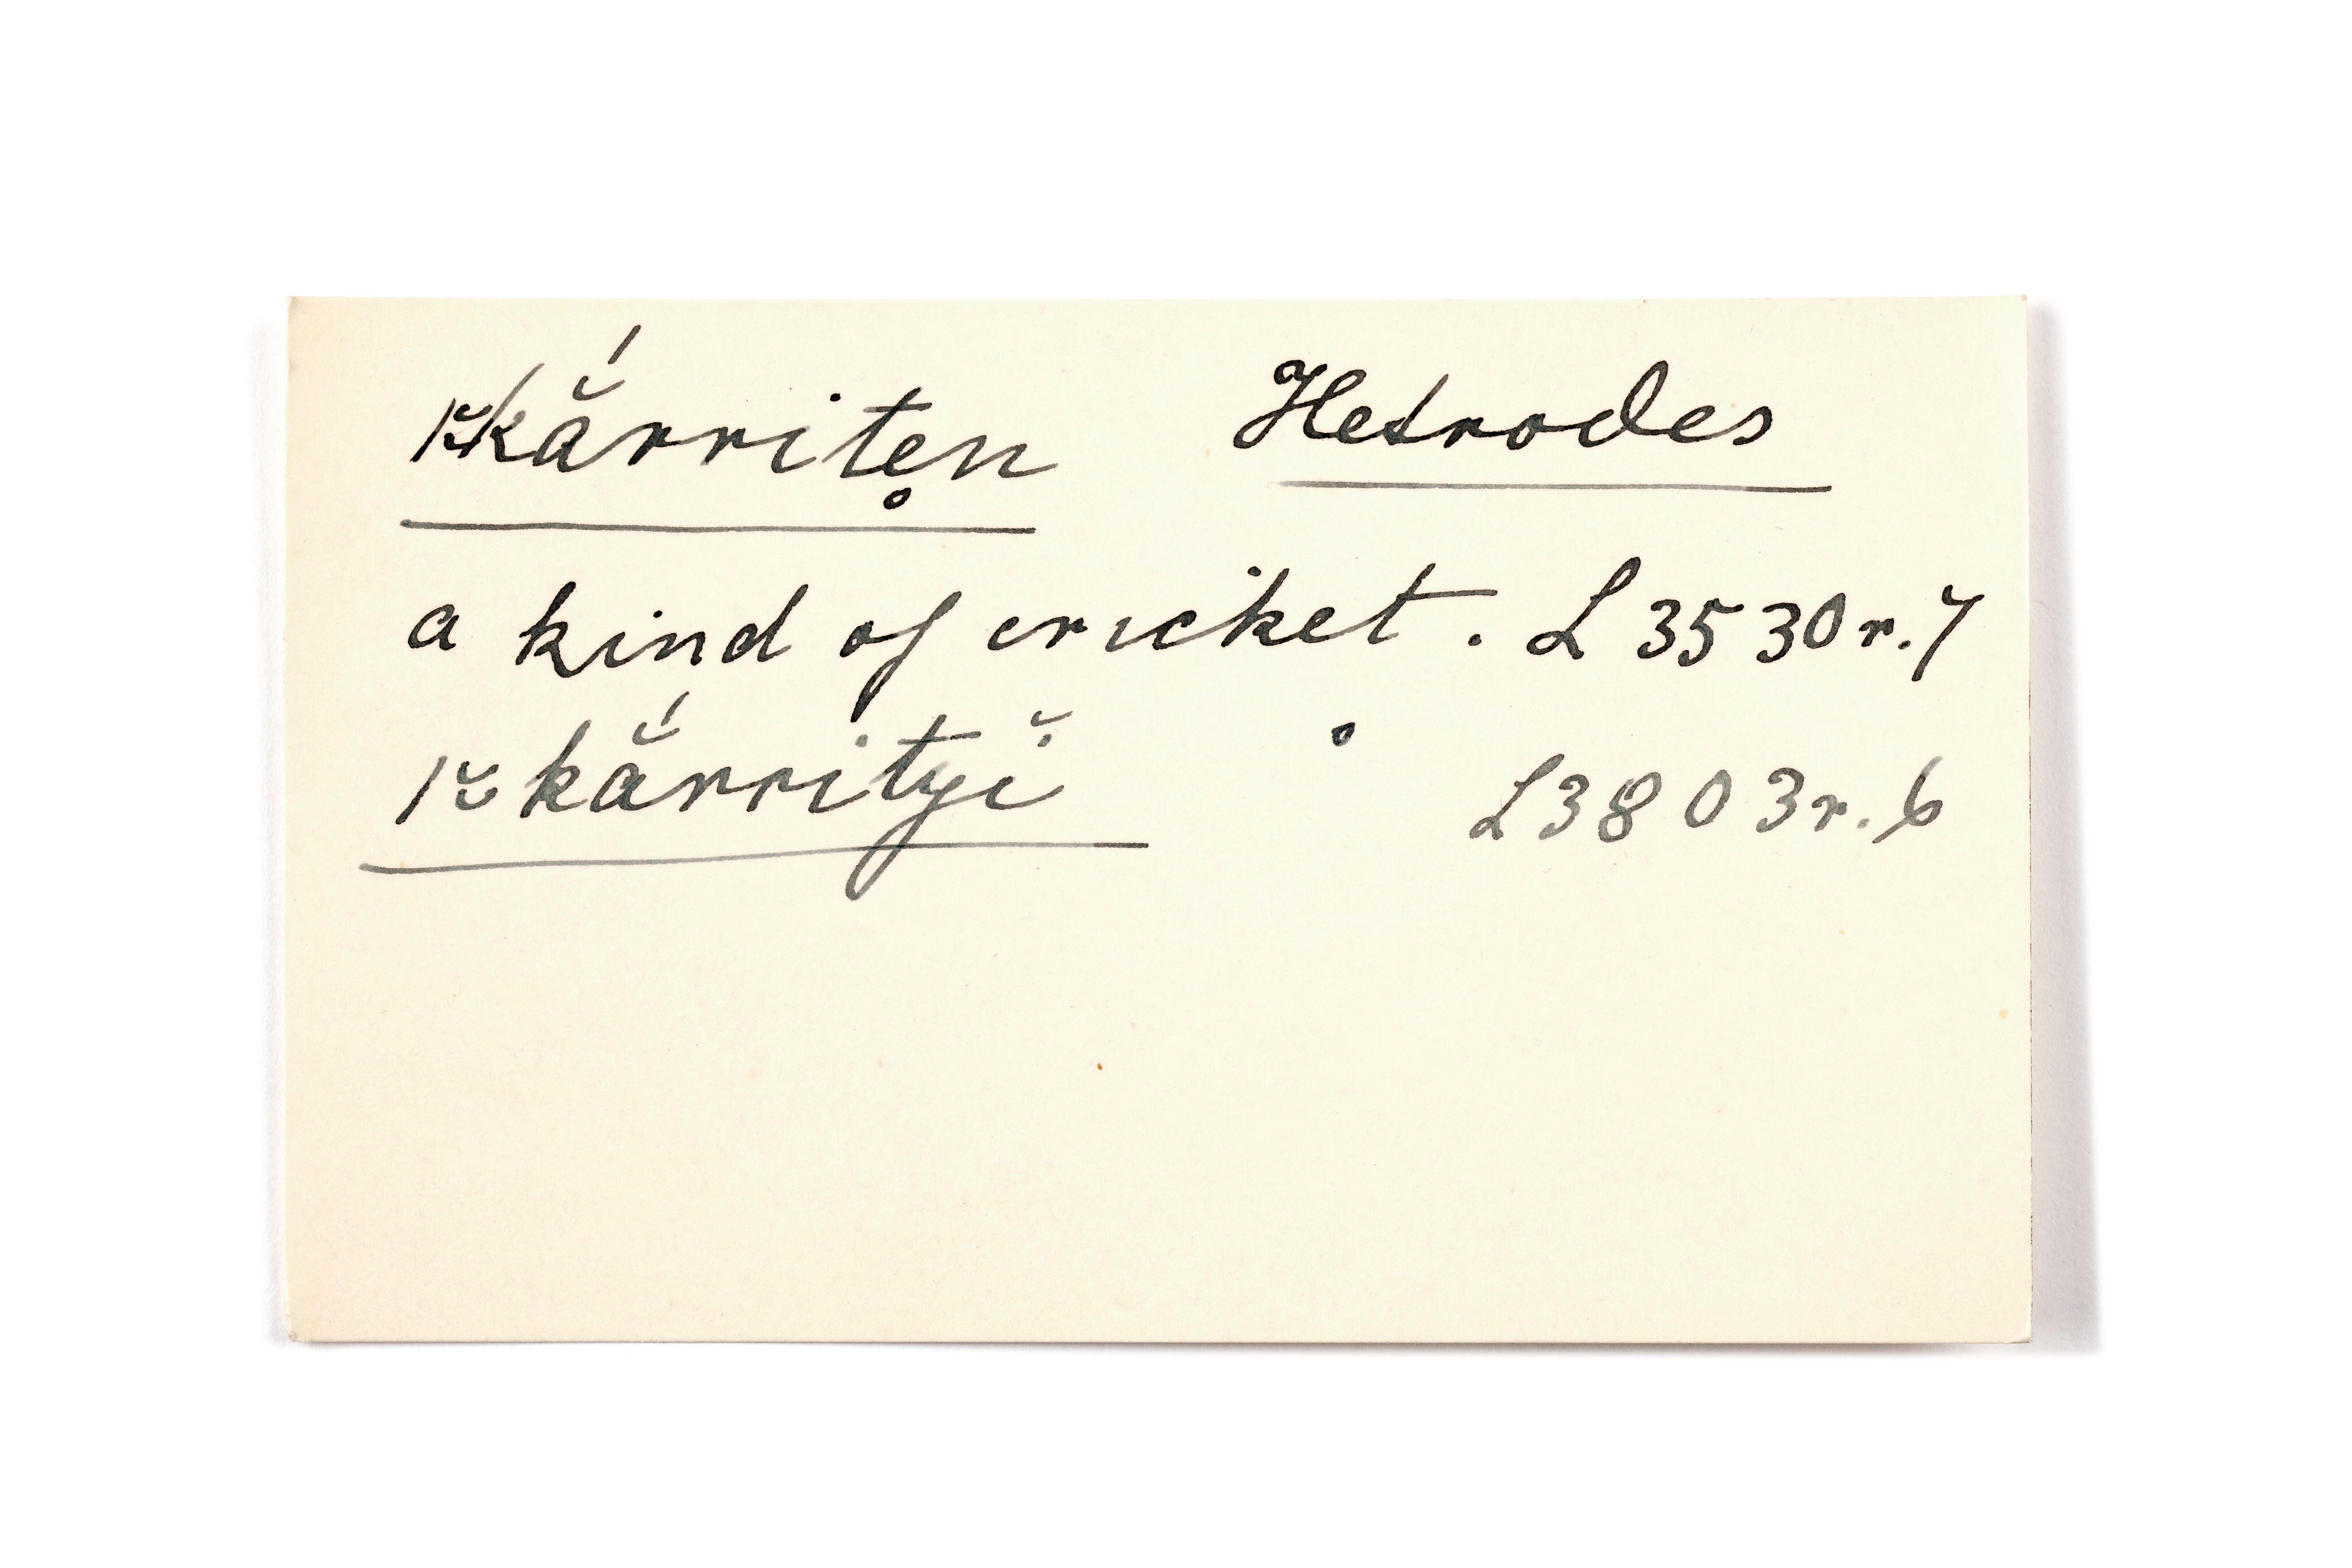 |˷kắrriten̥ Hetrodes
a kind of cricket. L 3530 r. 7
|˷kắrrityĭ L 3803 r. 6